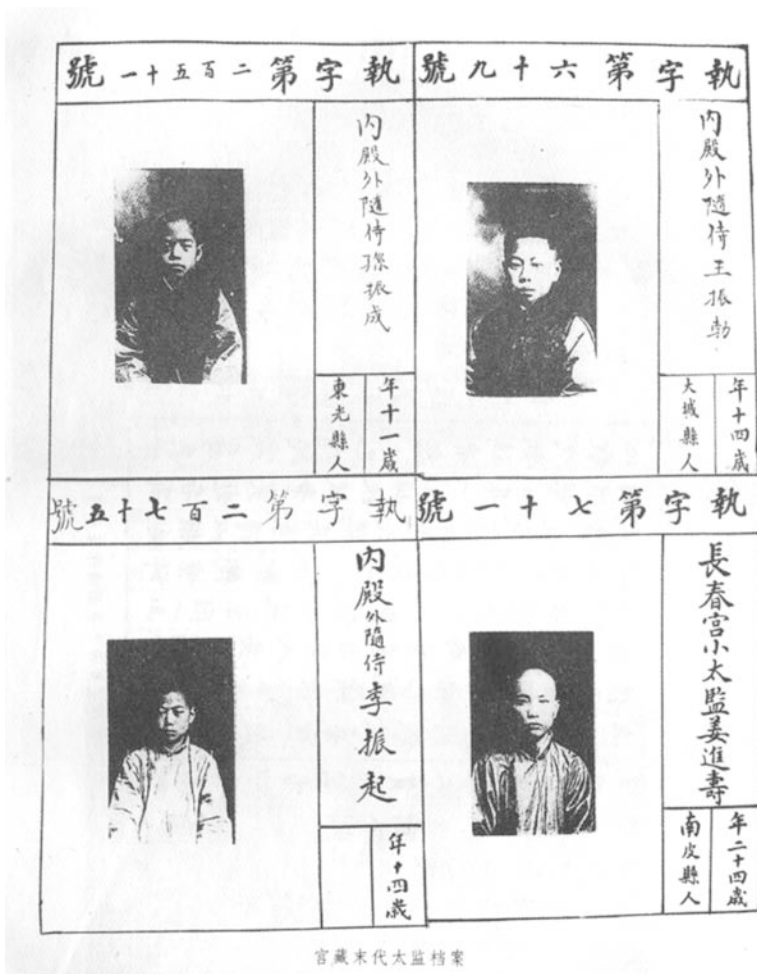 執字第六十九號
內殿外隨侍王振勃
年十四歲
大城縣人
執字第二百五十一號
內殿外隨侍孫振成
年十一歲
東光縣人
執字第七十一號
長春宮小太監姜進壽
年二十四歲
南皮縣人
執字第二百七十五號
內殿外隨侍李振起
年十四歲
宫藏末代太监档案